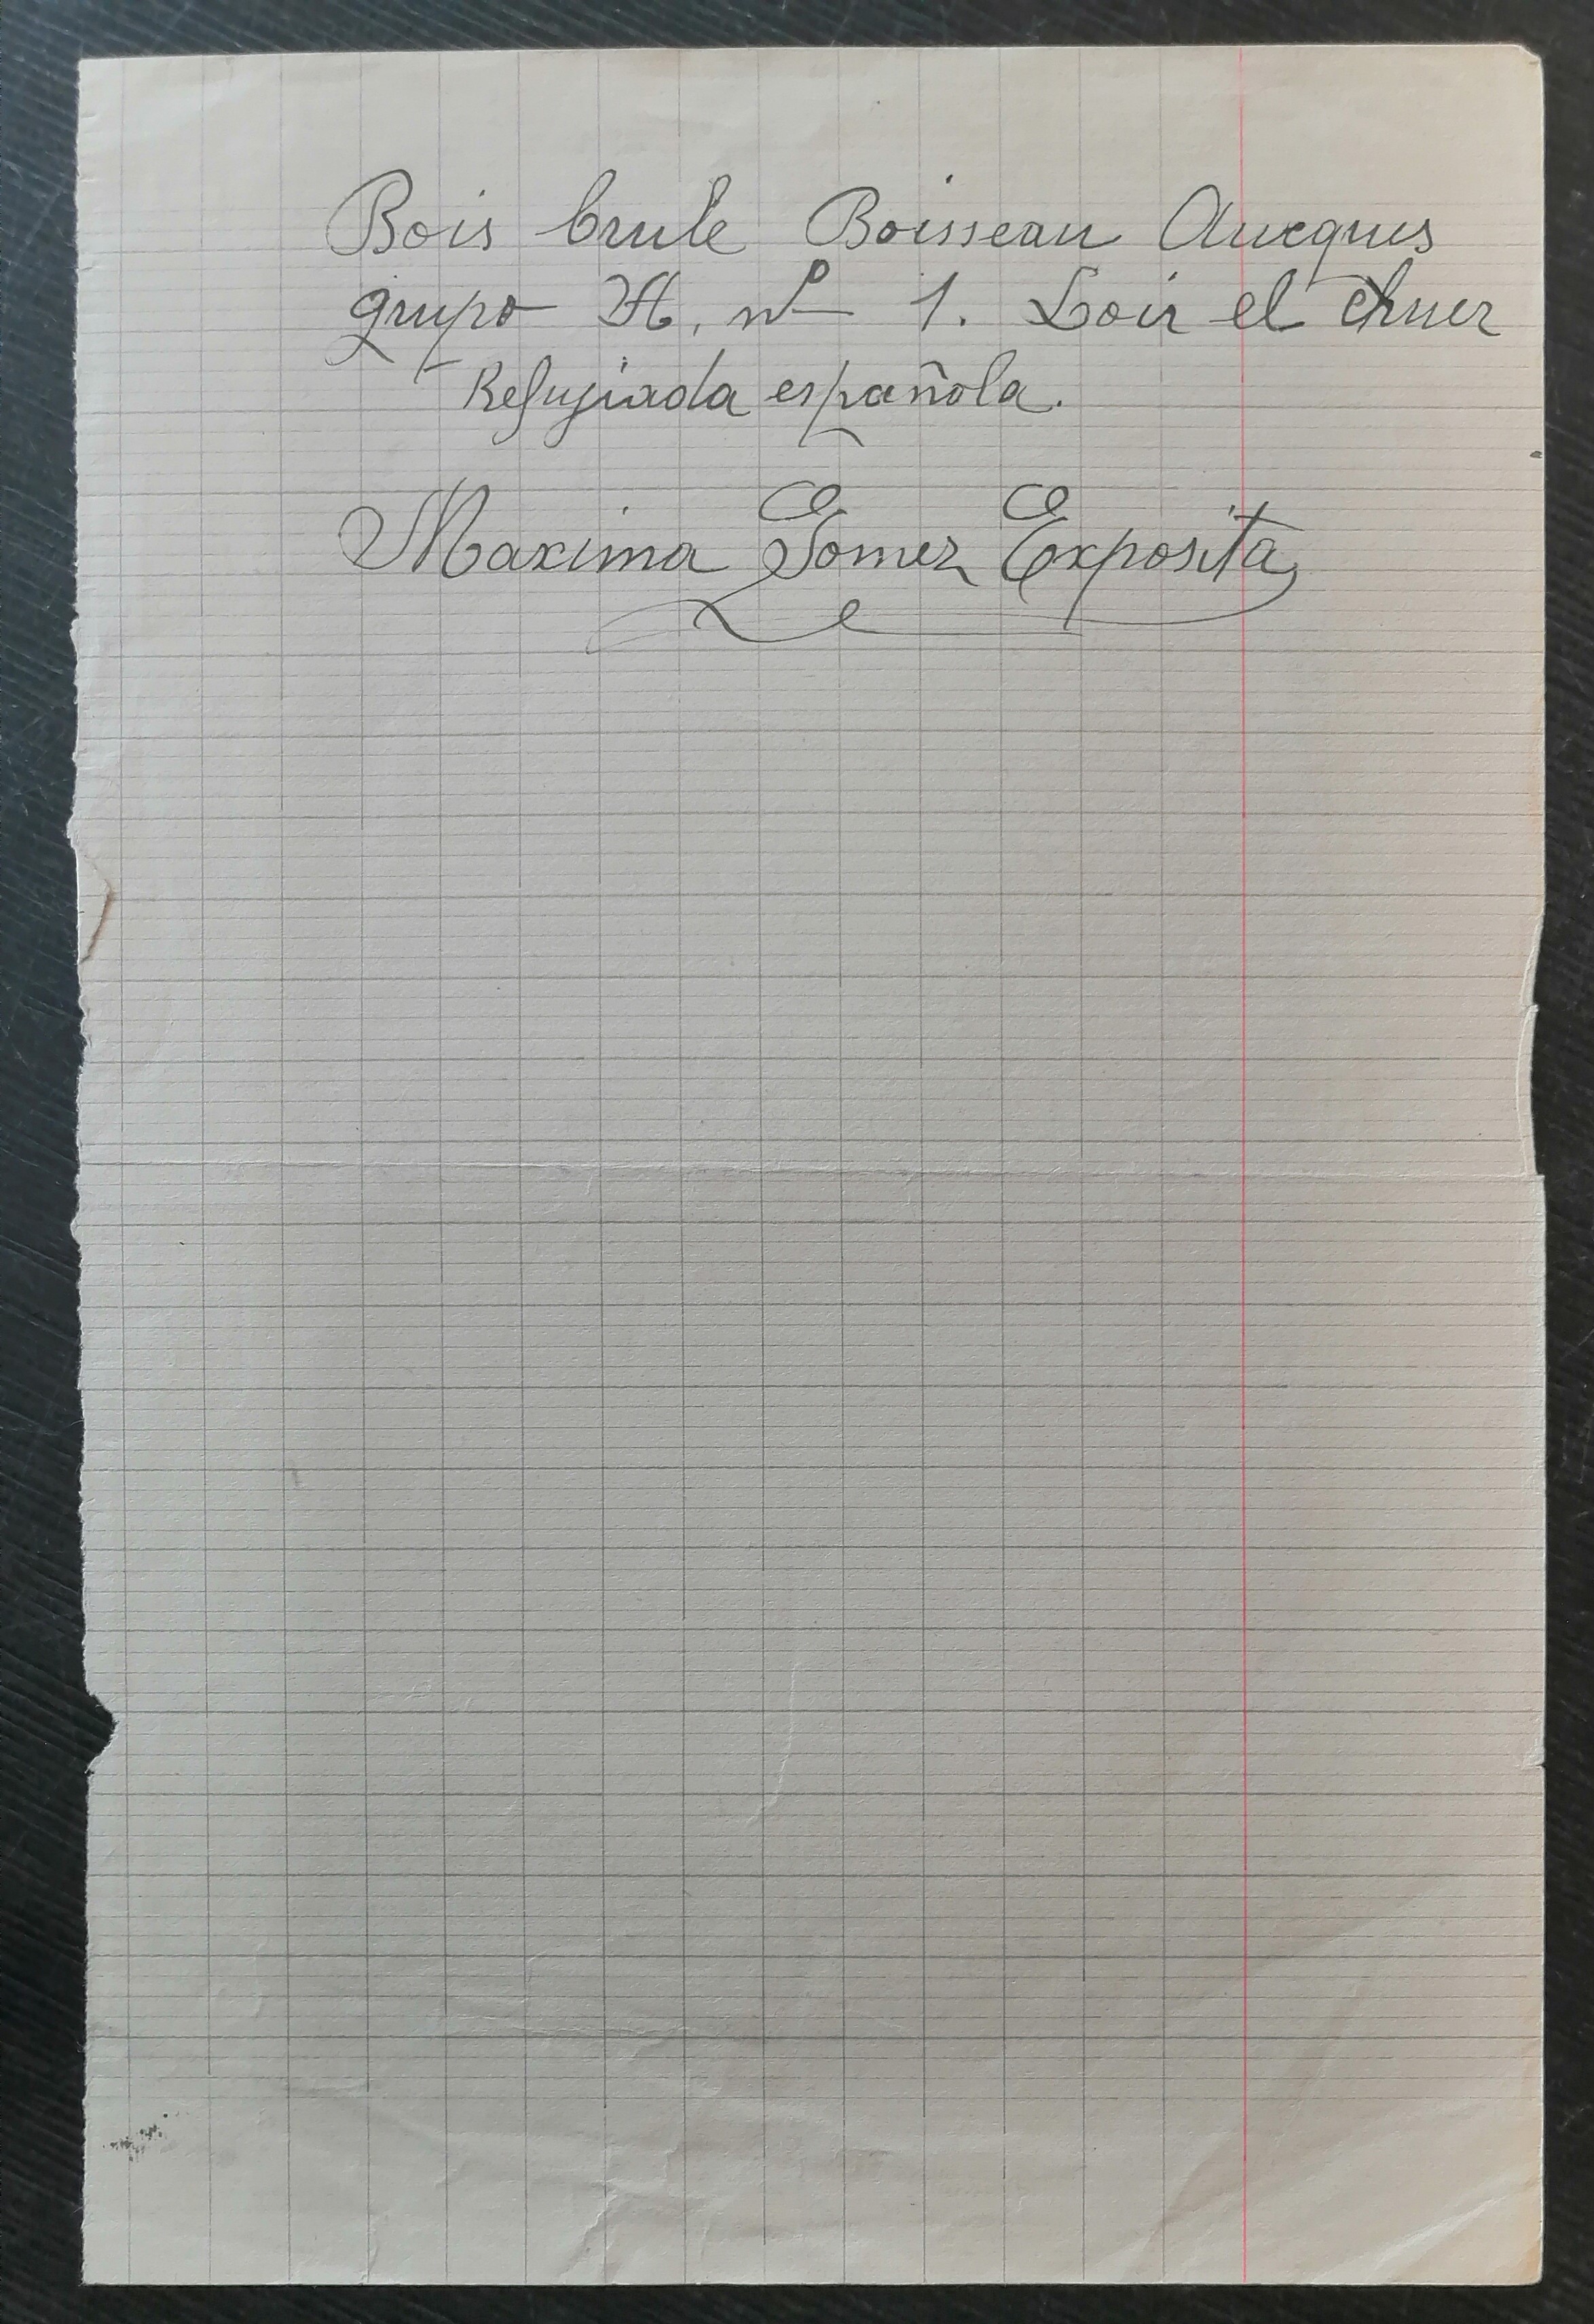 Bois brule Boisseau Aucques
grupo H. nº 1. Loir el chuer
Refugiada española.
Maxima Gomez Exposita